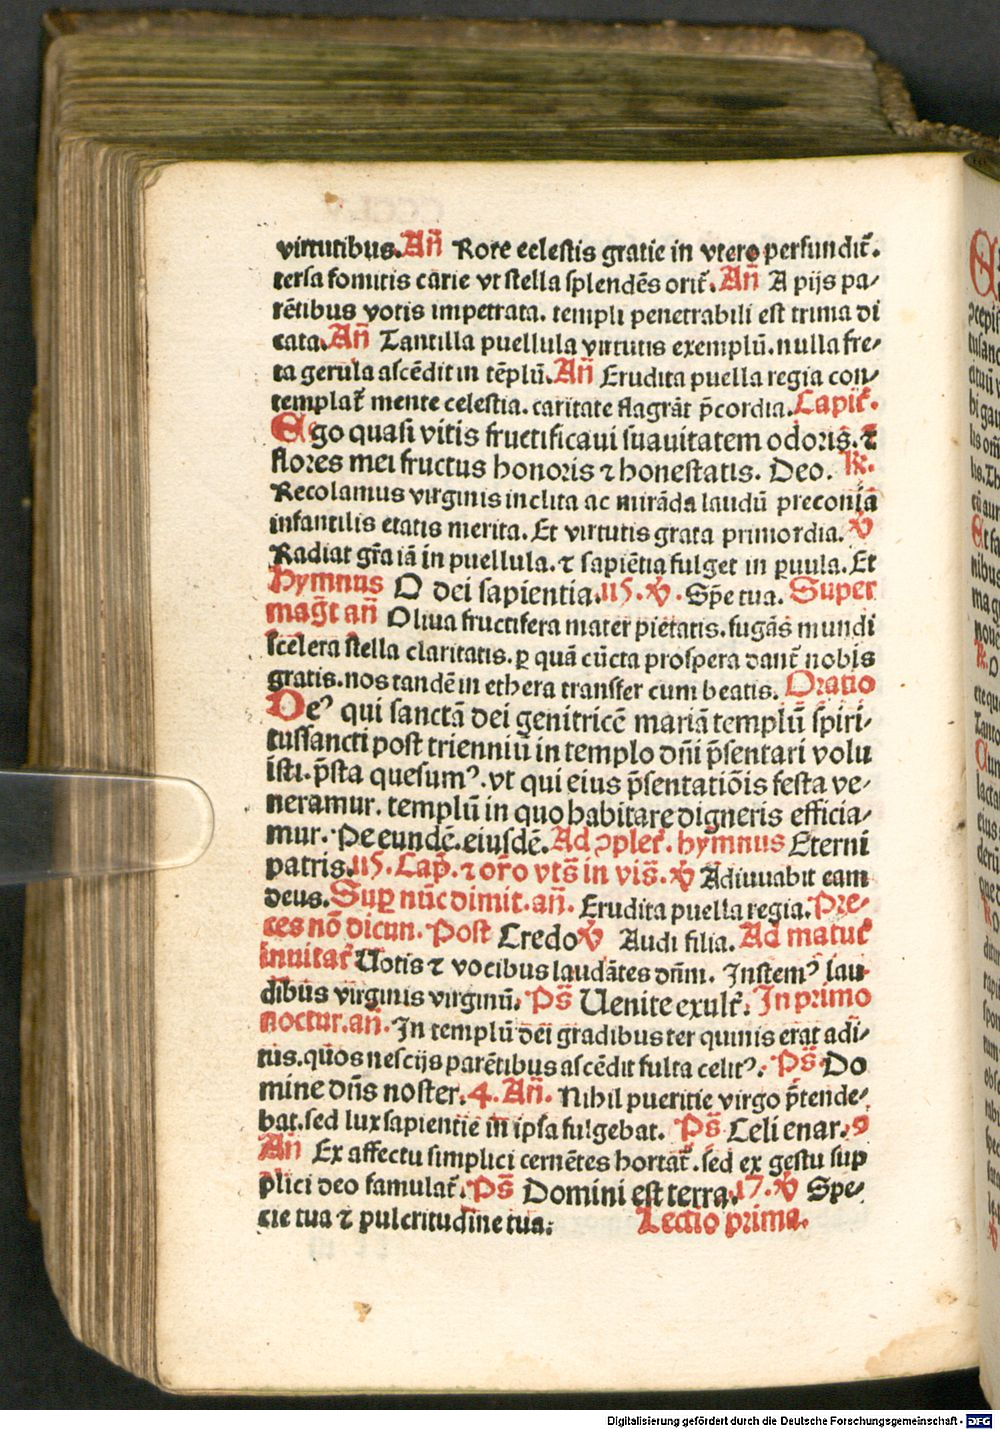 virtutibus. Añ Rore celestis gratie in vtero perfundit᷒.
tersa fomitis carie vt stella splendẽs orit᷒. Añ A pijs pa⸗
rẽtibus votis impetrata. templi penetrabili est trima di
cata. Añ Tantilla puellula virtutis exemplũ. nulla fre⸗
ta gerula ascẽdit in tẽplũ. Añ Erudita puella regia con⸗
templat᷒ mente celestia. caritate flagrãt p̃cordia. Capit᷒.
Ego quasi vitis fructificaui suauitatem odoris. ⁊
flores mei fructus honoris ⁊ honestatis. Deo. R̃.
Recolamus virginis inclita ac mirãda laudũ preconia
infantilis etatis merita. Et virtutis grata primordia. ℣
Radiat gr̃a iã in puellula. ⁊ sapiẽtia fulget in ꝑuula. Et
Hymnus O dei sapientia. 115. ℣. Sp̃e tua. Super
mag̃t añ Oliua fructifera mater pietatis. fugãs mundi
scelera stella claritatis. ꝑ quã cũcta prospera dant᷒ nobis
gratis. nos tandẽ in ethera transfer cum beatis. Oratio
Deꝰ qui sanctã dei genitricẽ mariã templũ spiri⸗
tussancti post trienniũ in templo dñi p̃sentari volu
isti. p̃sta quesumꝰ. vt qui eius p̃sentatiõis festa ve⸗
neramur. templũ in quo habitare digneris efficia⸗
mur. Pe eundẽ. eiusdẽ. Ad ↄplet᷒. hymnus Eterni
patris. 115. Cap̃. ⁊ or̃o vts̃ in vis̃. ℣ Adiuuabit eam
deus. Suꝑ nũc dimit. añ. Erudita puella regia. Pre⸗
ces nõ dicun. Post Credo ℣ Audi filia. Ad matut᷒
inuitat᷒ Uotis ⁊ vocibus laudãtes dñm. Instemꝰ lau⸗
dibus virginis virginũ. Ps̃ Uenite exult᷒. In primo
noctur. añ. In templũ dei gradibus ter quinis erat adi⸗
tus. quos nescijs parẽtibus ascẽdit fulta celitꝰ. Ps̃ Do
mine dñs noster. 4. Añ. Nihil pueritie virgo p̃tende⸗
bat. sed lux sapientie in ipsa fulgebat. Ps̃ Celi enar. 9
Añ Ex affectu simplici cernẽtes hortat᷒. sed ex gestu sup
plici deo famulat᷒. Ps̃ Domini est terra. 17. ℣ Spe⸗
cie tua ⁊ pulcritudine tua. Lectio prima.
Digitalisierung gefördert durch die Deutsche Forschungsgemeinschaft - DFG